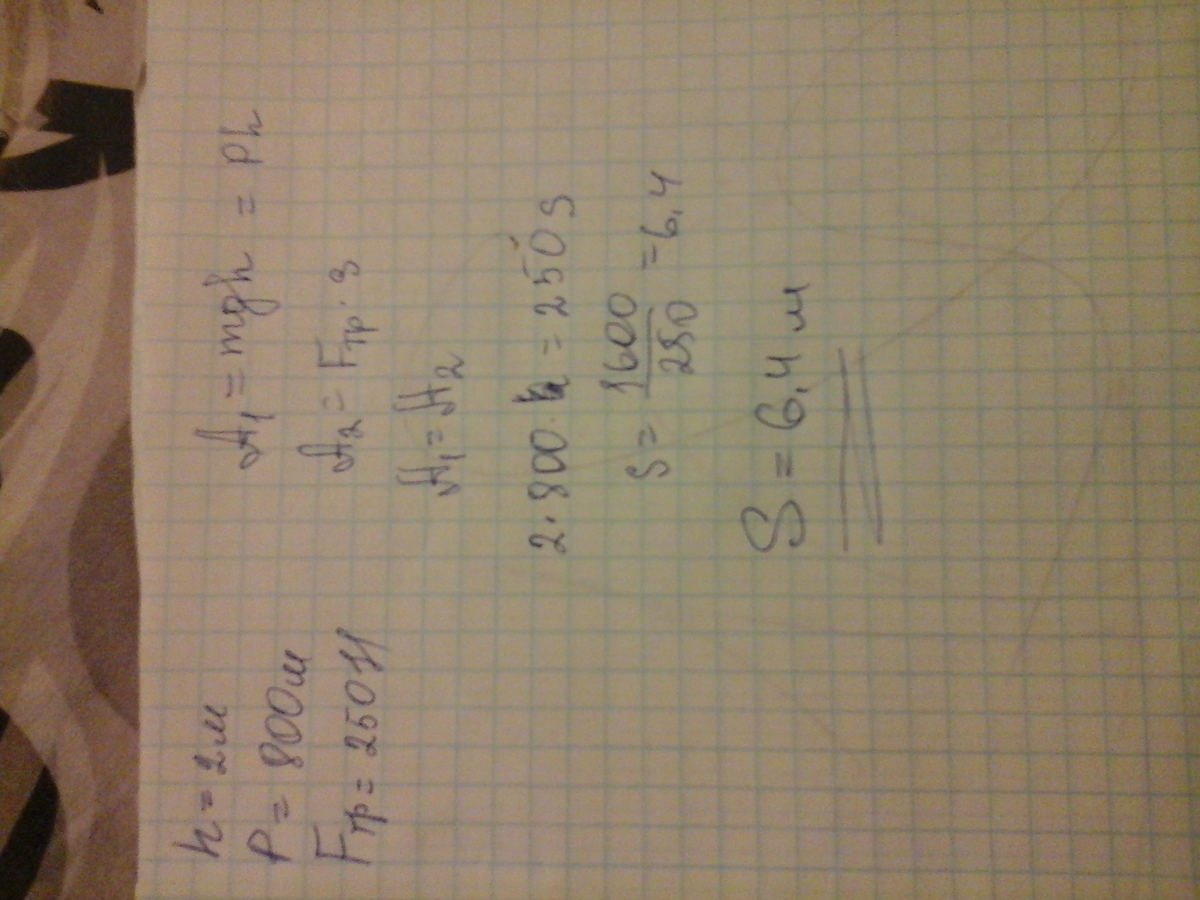 h = 2м
P = 800м
Fтр = 250Н
A₁ = mgh = Ph
A₂ = Fтр · S
A₁ = A₂
2 · 800 = 250 S
S = 1600/250 = 6,4
S = 6,4 м